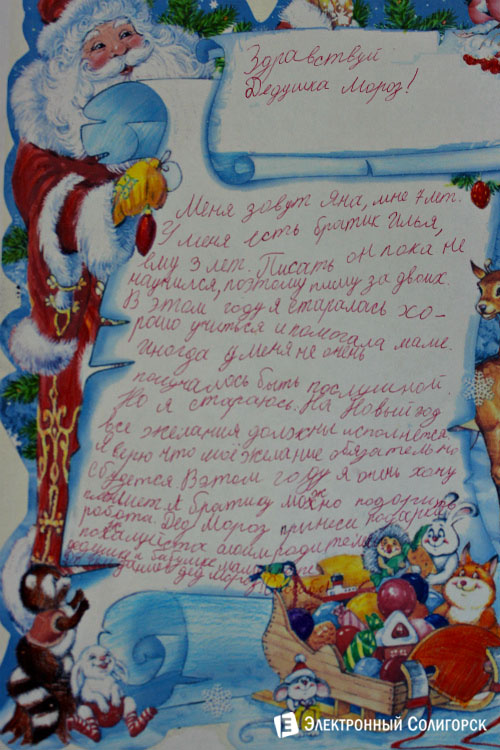 Здравствуй
Дедушка Мороз!
Меня зовут Яна, мне 7 лет.
У меня есть братик Илья,
ему 3 лет. Писать он пока не
научился, поэтому пишу за двоих.
В этом году я старалась хо-
рошо учиться и помогала маме.
Иногда у меня не очень
получалось быть послушной.
Но я стараюсь. На Новый год
все желания должны исполнятся.
Я верю что моё желание обязательно
сбудется. В этом году я очень хочу
братику можно подарить
робота. Дед Мороз принеси подарки
пожалуйста моим родителям
дедушке и бабушке
Дед Мороз
Электронный Солигорск